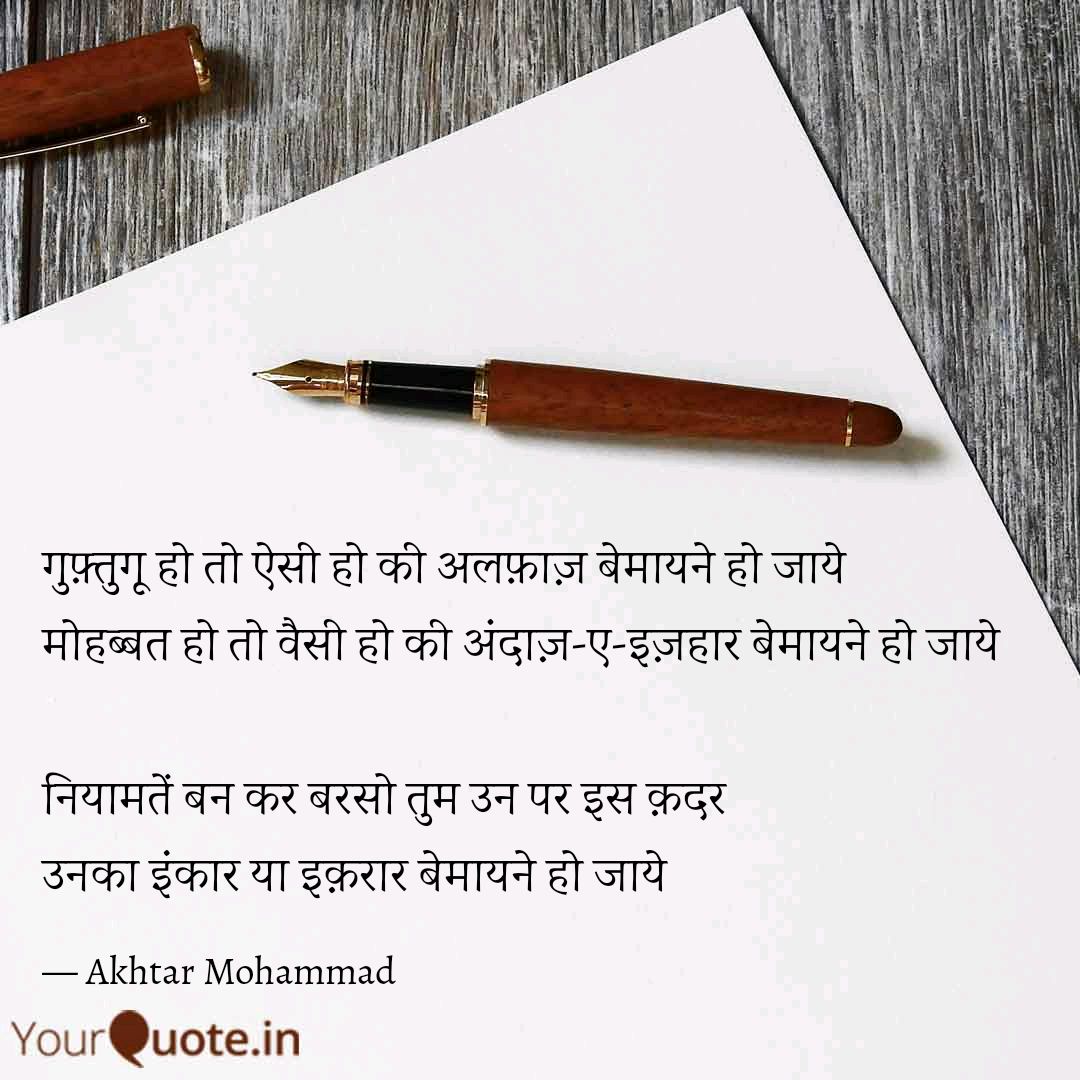 गुफ़्तुगू हो तो ऐसी हो की अलफ़ाज़ बेमायने हो जाये
मोहब्बत हो तो वैसी हो की अंदाज़-ए-इज़हार बेमायने हो जाये
नियामतें बन कर बरसो तुम उन पर इस क़दर
उनका इंकार या इक़रार बेमायने हो जाये
— Akhtar Mohammad
YourQuote.in